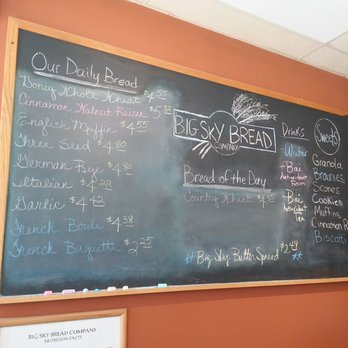 Our Daily Bread
Honey Whole Wheat $4.55
Cinnamon Walnut Raisin $5.72
English Muffin $4.55
Three Seed $4.80
German Rye $4.80
Italian
Garlic
French Boule $4.38
French Baguette $2.25
BIG SKY BREAD
COMPANY
Bread of the Day
Country Wheat $4.55
Big Sky Butter Spread $2.49
Drinks
Water
Bai
Bai
Tea
Sweets
Granola
Brownies
Scones
Cookies
Muffins
Cinnamon Rolls
Biscotti
BIG SKY BREAD COMPANY
NUTRITION FACTS